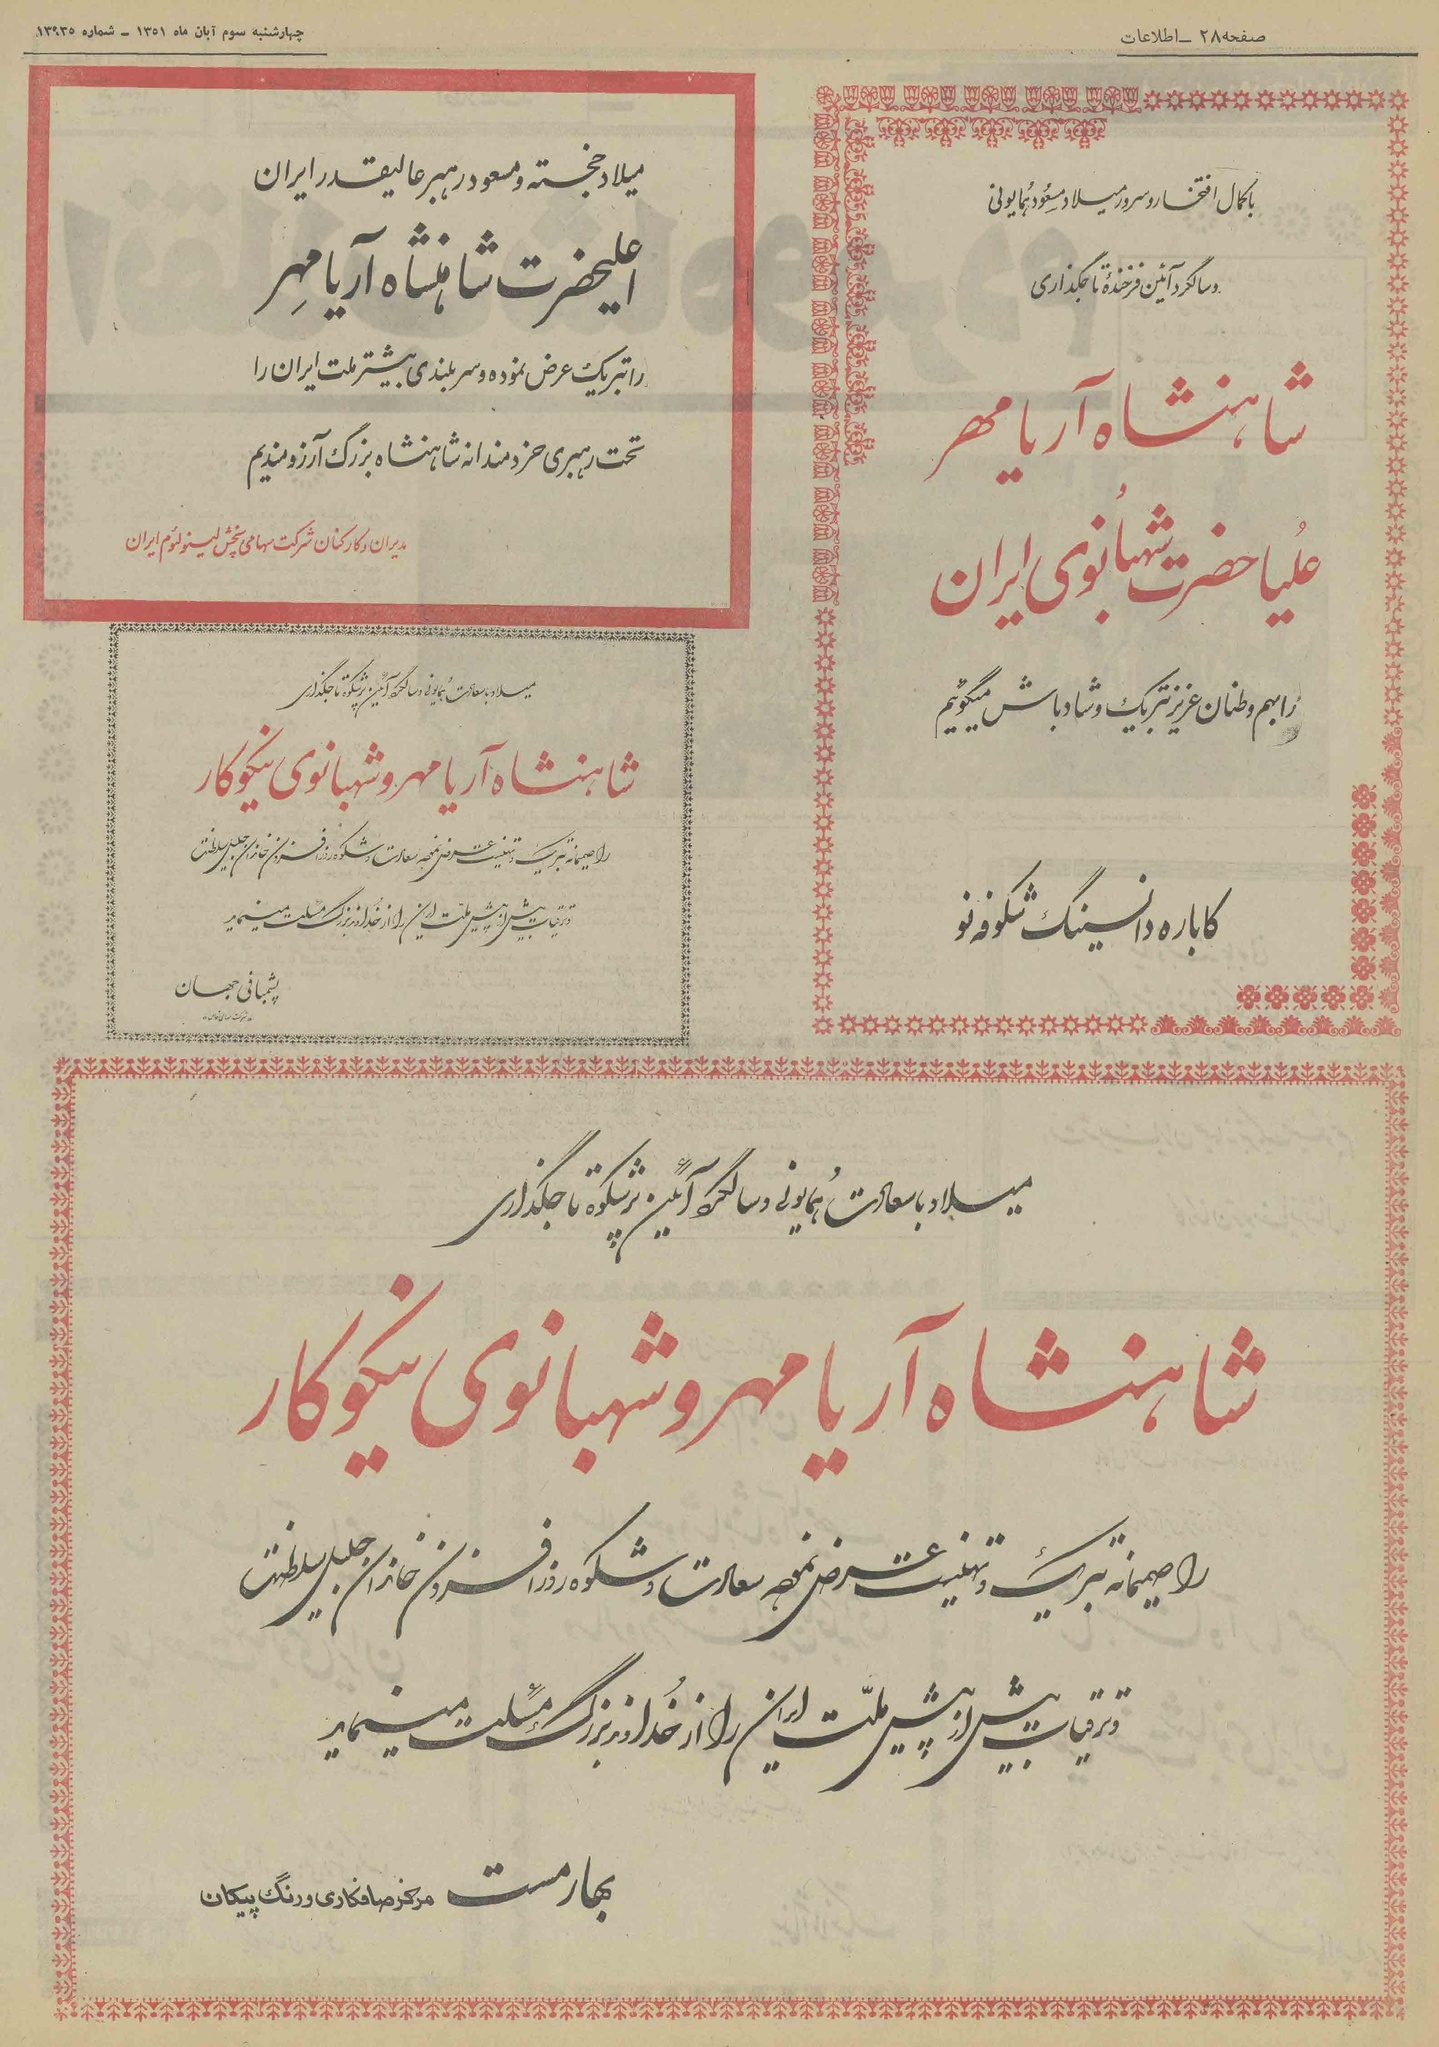 صفحه ۲۸ ــ اطلاعات
چهارشنبه سوم آبان ماه ۱۳۵۱ ــ شماره ۱۳۹۳۵
با کمال افتخار و سرور میلاد مسعود همایونی
و سالگرد آئین فرخندهٔ تاجگذاری
شاهنشاه آریامهر
علیاحضرت شهبانوی ایران
را بهم وطنان عزیز تبریک و شادباش میگوئیم
کاباره دانسینگ شکوفه نو
میلاد خجسته و مسعود رهبر عالیقدر ایران
اعلیحضرت شاهنشاه آریامهر
را تبریک عرض نموده و سربلندی بیشتر ملت ایران را
تحت رهبری خردمندانه شاهنشاه بزرگ آرزومندیم
مدیران و کارکنان شرکت سهامی پخش لینولئوم ایران
میلاد با سعادت همایونی و سالگرد آئین پرشکوه تاجگذاری
شاهنشاه آریامهر و شهبانوی نیکوکار
را صمیمانه تبریک و تهنیت عرض نموده سعادت و شکوه روزافزون خاندان جلیل سلطنت
و ترقیات بیش از پیش ملت ایران را از خداوند بزرگ مسئلت مینماید
پشمبافی جهان
میلاد با سعادت همایونی و سالگرد آئین پرشکوه تاجگذاری
شاهنشاه آریامهر و شهبانوی نیکوکار
را صمیمانه تبریک و تهنیت عرض نموده سعادت و شکوه روزافزون خاندان جلیل سلطنت
و ترقیات بیش از پیش ملّت ایران را از خُداوند بزرگ مسئلت مینماید
بهارمست مرکز صافکاری و رنگ پیکان